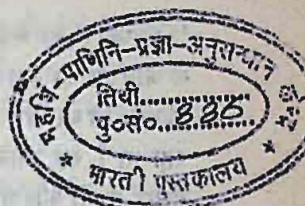 महर्षि-पाणिनि-प्रज्ञा-अनुसन्धान केन्द्र
तिथी..............
पु०सं०..........
* भारती पुस्तकालय *